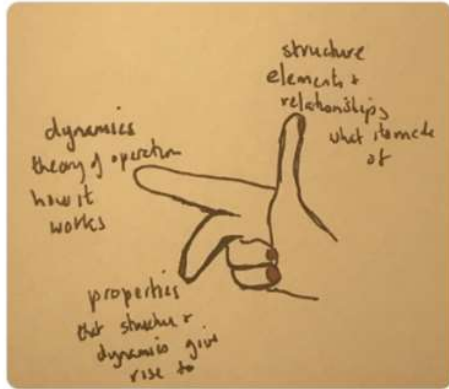 structure
elements +
relationships
what it's made
of
dynamics
theory of operation
how it
works
properties
that structure +
dynamics give
rise to